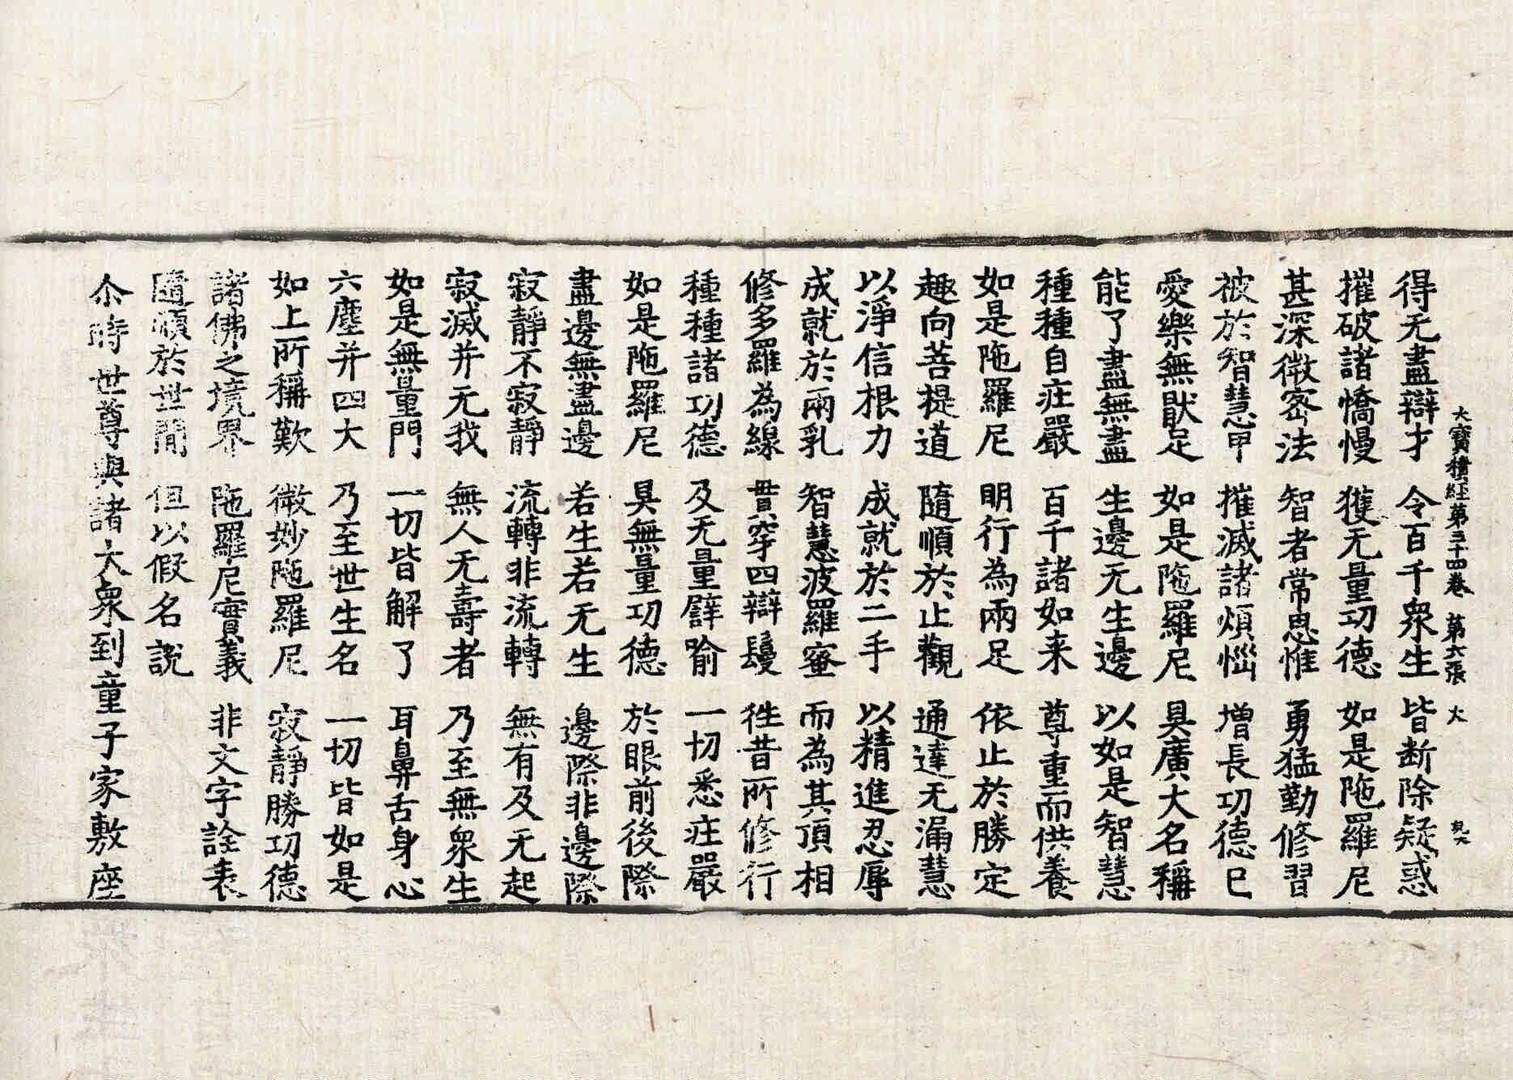 大寶積經第三十四卷 第六張 火
得无盡辯才 令百千衆生 皆断除疑惑
摧破諸憍慢 獲无量功德 如是陁羅尼
甚深微密法 智者常思惟 勇猛勤修習
被於智慧甲 摧滅諸煩惱 增長功德已
愛樂無猒足 如是陁羅尼 具廣大名稱
能了盡無盡 生邊无生邊 以如是智慧
種種自庄嚴 百千諸如来 尊重而供養
如是陁羅尼 明行為兩足 依止於勝定
趣向菩提道 隨順於止觀 通達无漏慧
以淨信根力 成就於二手 以精進忍辱
成就於兩乳 智慧波羅蜜 而為其頂相
修多羅為線 貫穿四辯鬘 徃昔所修行
種種諸功德 及无量譬喻 一切悉庄嚴
如是陁羅尼 具無量功德 於眼前後際
盡邊無盡邊 若生若无生 邊際非邊際
寂靜不寂靜 流轉非流轉 無有及无起
寂滅并无我 無人无壽者 乃至無衆生
如是無量門 一切皆解了 耳鼻舌身心
六塵并四大 乃至世生名 一切皆如是
如上所稱歎 微妙陁羅尼 寂靜勝功德
諸佛之境界 陁羅尼實義 非文字詮表
隨順於世間 但以假名說
尒時世尊與諸大衆到童子家敷座